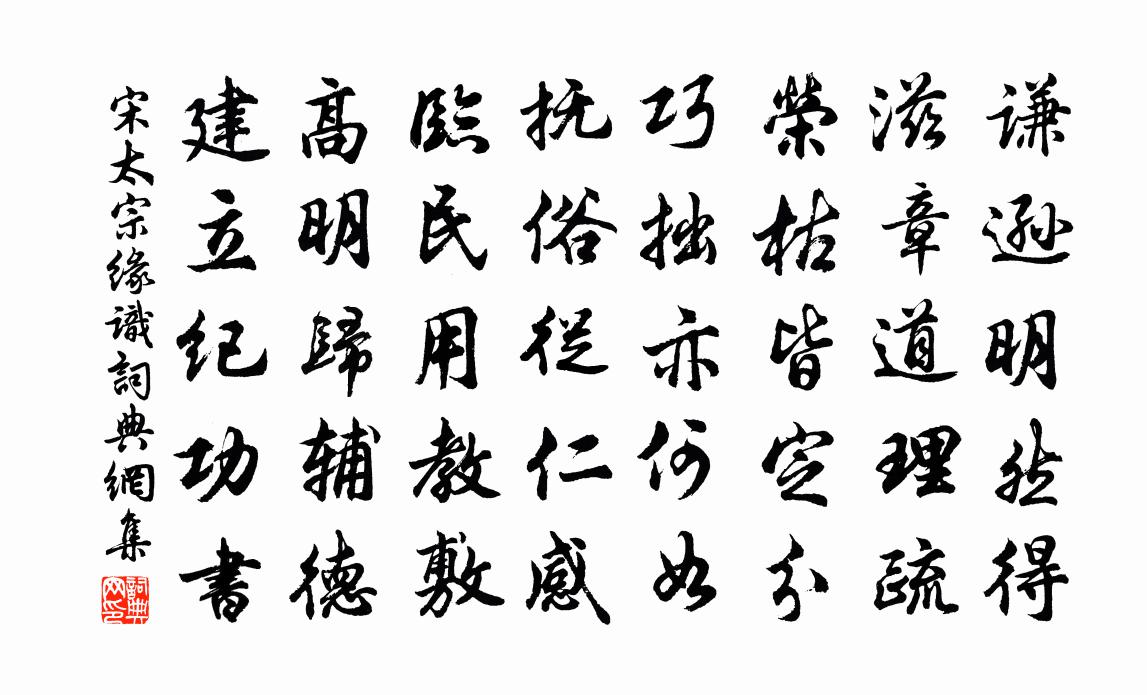 谦逊明然得
滋章道理疏
榮枯皆定分
巧拙亦何如
抚俗從仁感
臨民用教敷
高明歸辅德
建立纪功書
宋太宗缘識詞典網集
詞典网印